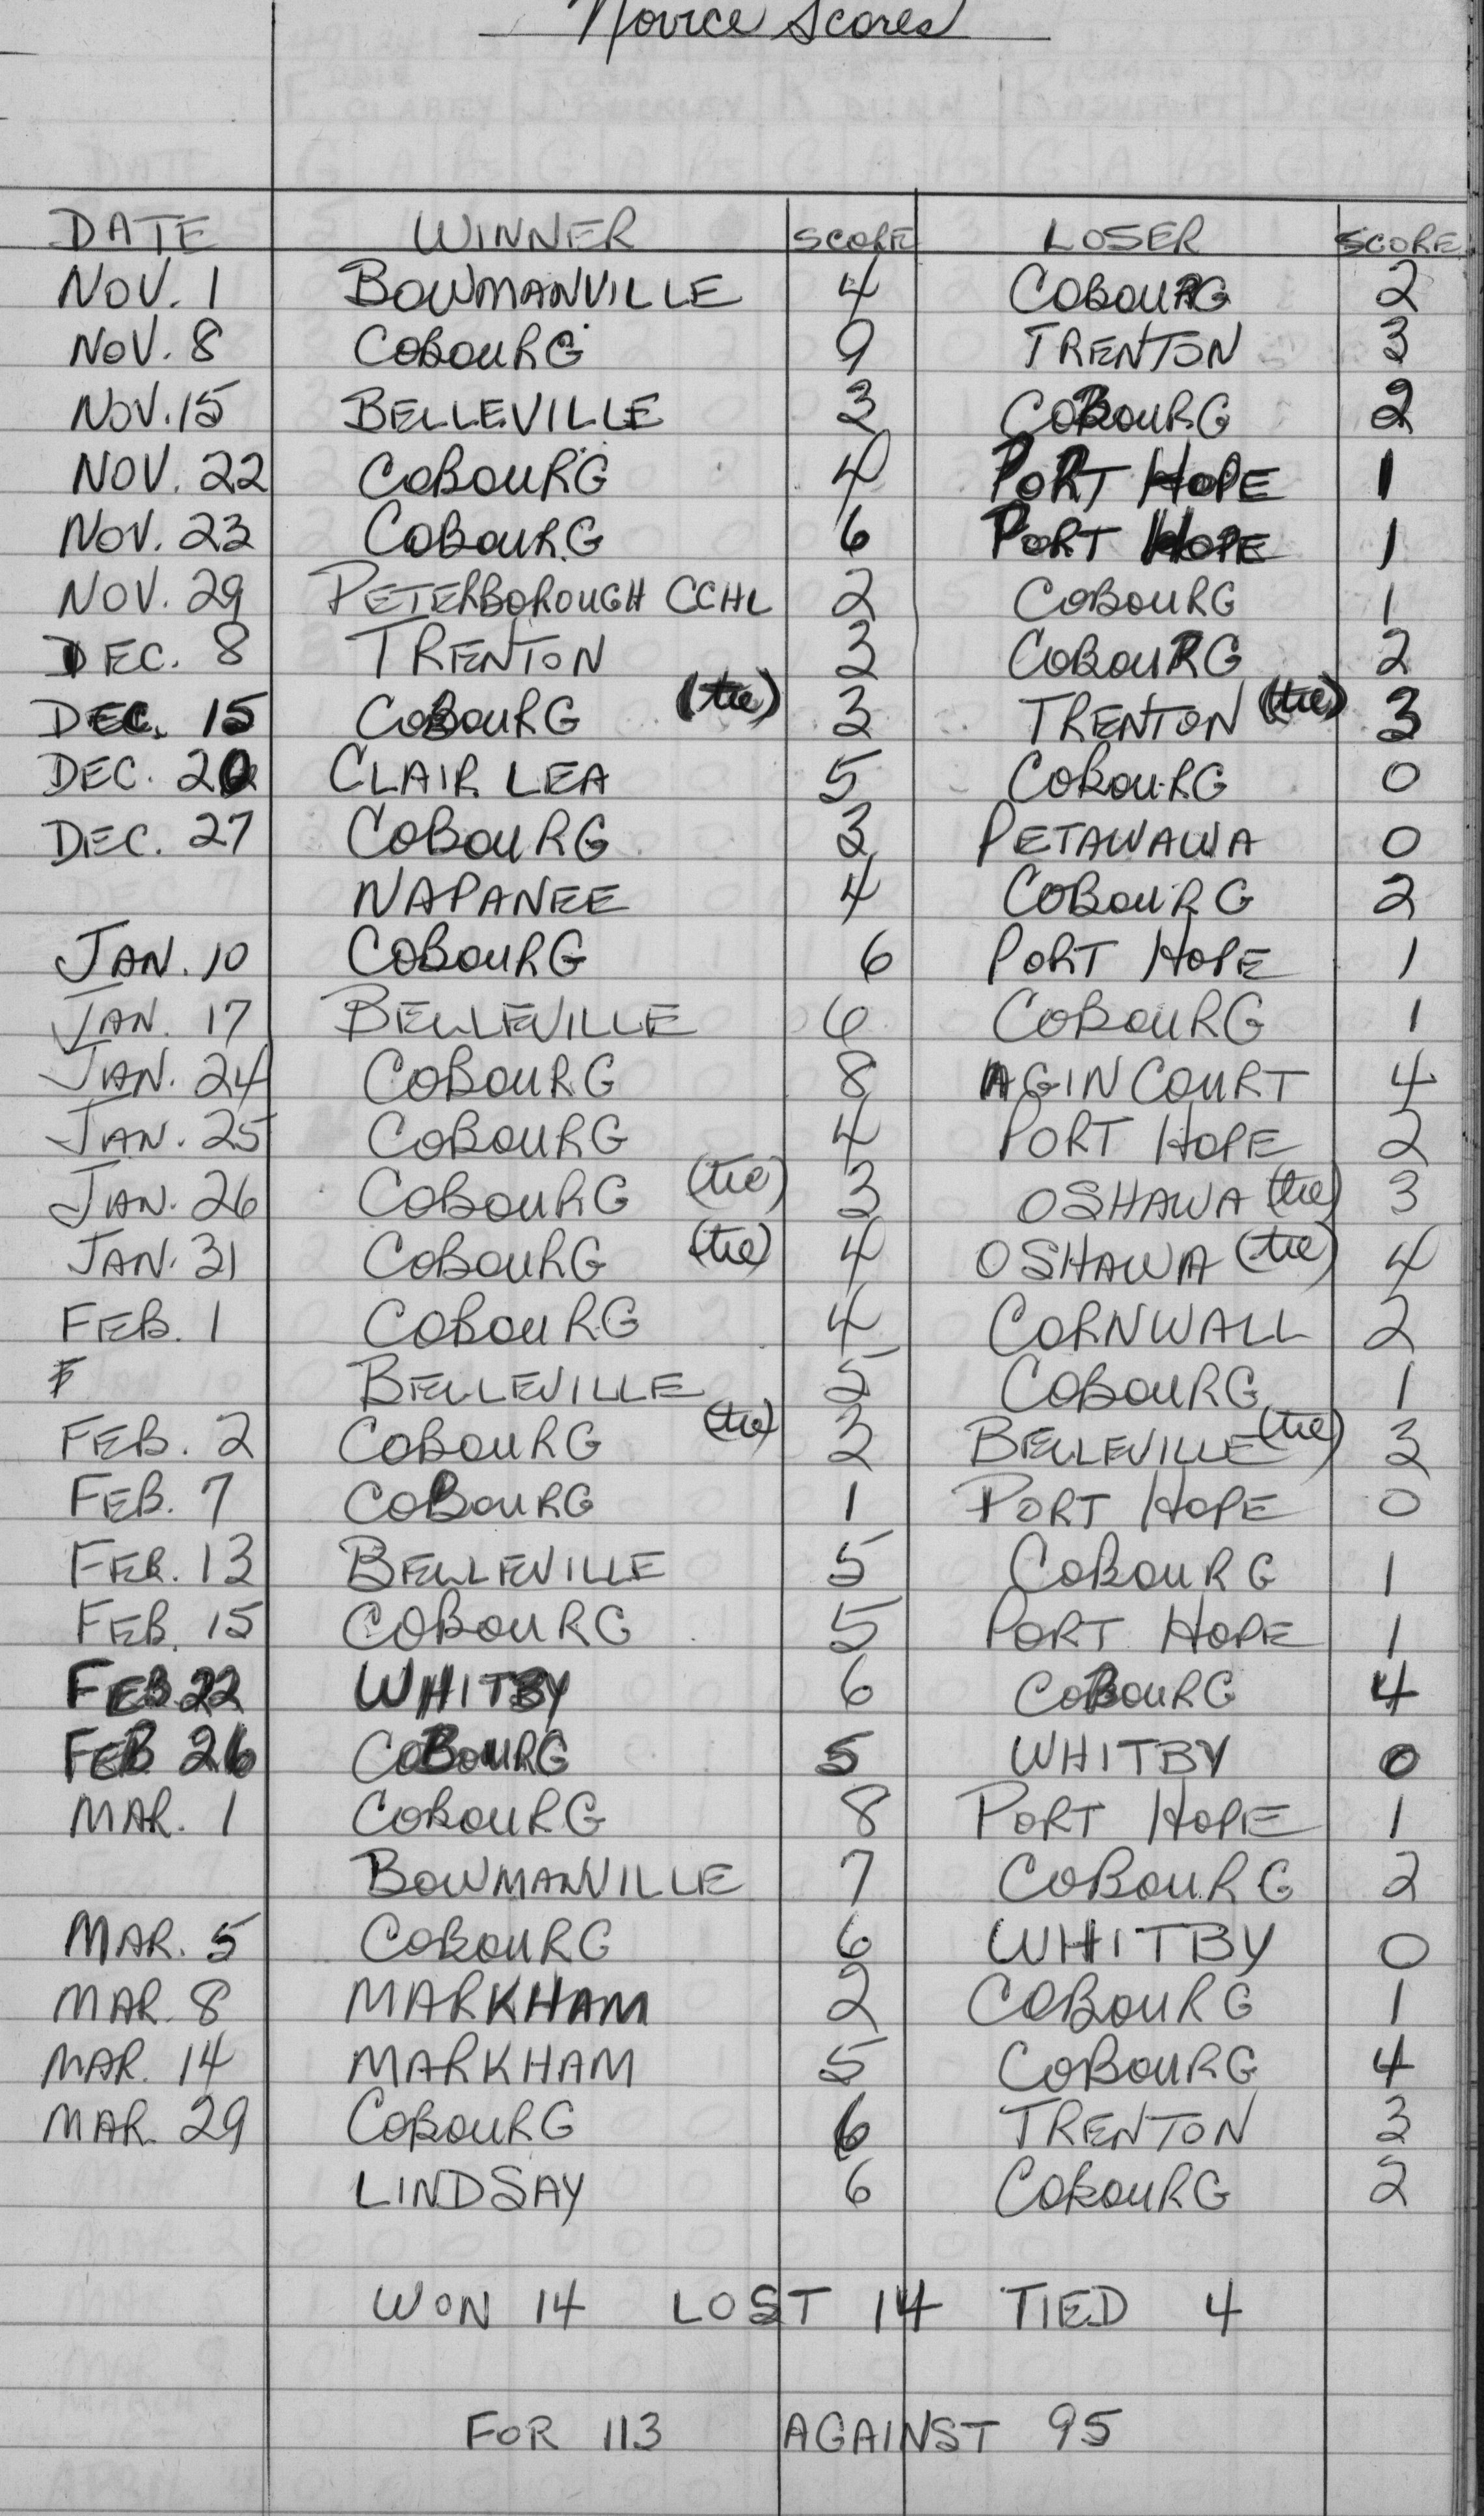 Novice Scores
DATE WINNER SCORE LOSER SCORE
NOV. 1 BOWMANVILLE 4 COBOURG 2
NOV. 8 COBOURG 9 TRENTON 3
NOV. 15 BELLEVILLE 3 COBOURG 2
NOV. 22 COBOURG 4 PORT HOPE 1
NOV. 23 COBOURG 6 PORT HOPE 1
NOV. 29 PETERBOROUGH CCHL 2 COBOURG 1
DEC. 8 TRENTON 3 COBOURG 2
DEC. 15 COBOURG (tie) 3 TRENTON (tie) 3
DEC. 20 CLAIR LEA 5 COBOURG 0
DEC. 27 COBOURG 3 PETAWAWA 0
NAPANEE 4 COBOURG 2
JAN. 10 COBOURG 6 PORT HOPE 1
JAN. 17 BELLEVILLE 6 COBOURG 1
JAN. 24 COBOURG 8 AGINCOURT 4
JAN. 25 COBOURG 4 PORT HOPE 2
JAN. 26 COBOURG (tie) 3 OSHAWA (tie) 3
JAN. 31 COBOURG (tie) 4 OSHAWA (tie) 4
FEB. 1 COBOURG 4 CORNWALL 2
BELLEVILLE 5 COBOURG 1
FEB. 2 COBOURG (tie) 3 BELLEVILLE (tie) 3
FEB. 7 COBOURG 1 PORT HOPE 0
FEB. 13 BELLEVILLE 5 COBOURG 1
FEB. 15 COBOURG 5 PORT HOPE 1
FEB 22 WHITBY 6 COBOURG 4
FEB 26 COBOURG 5 WHITBY 0
MAR. 1 COBOURG 8 PORT HOPE 1
BOWMANVILLE 7 COBOURG 2
MAR. 5 COBOURG 6 WHITBY 0
MAR. 8 MARKHAM 2 COBOURG 1
MAR. 14 MARKHAM 5 COBOURG 4
MAR. 29 COBOURG 6 TRENTON 3
LINDSAY 6 COBOURG 2
WON 14 LOST 14 TIED 4
FOR 113 AGAINST 95